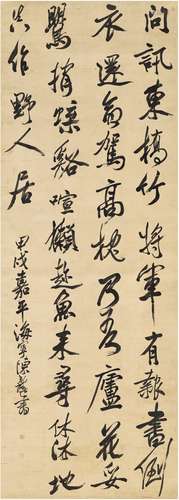 問訊東橋竹將軍有報書倒
衣還命駕高枕乃吾廬花妥
鶯捎蝶谿喧獺趁魚來尋休沐地
真作野人居
甲戌嘉平海寧書